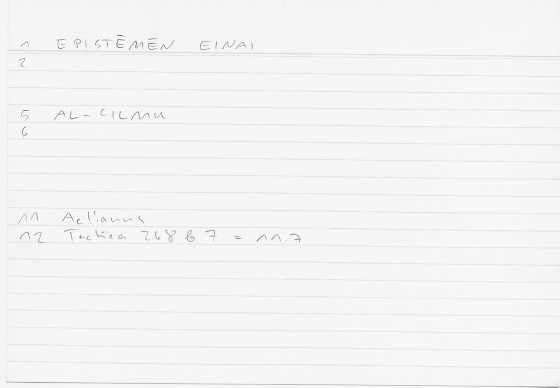 1 EPISTĒMĒN EINAI
2
5 AL-ʿILMU
6
11 Aelianus
12 Tactica 268 b 7 = 11.7